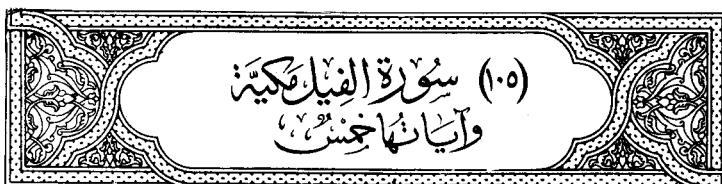 (١٠٥) سُورَة الفِيل مَكيَّة
وَآيَاتهَا خَمْسٌ